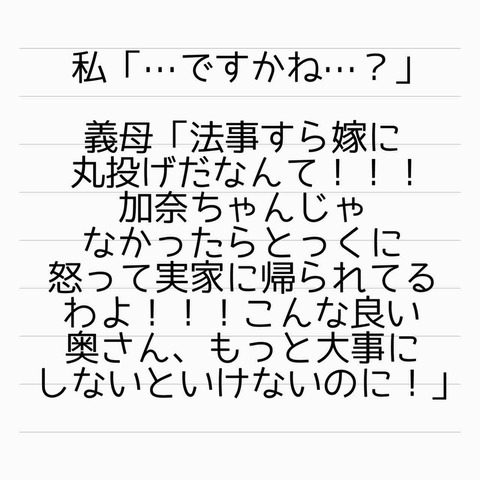 私「…ですかね…？」
義母「法事すら嫁に
丸投げだなんて！！！
加奈ちゃんじゃ
なかったらとっくに
怒って実家に帰られてる
わよ！！！こんな良い
奥さん、もっと大事に
しないといけないのに！」